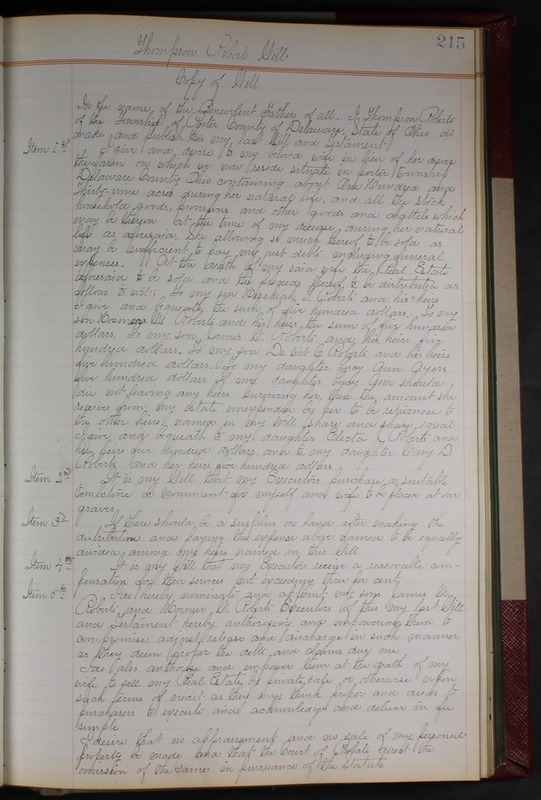 215
Thompson Roberts Will
Copy of Will
In the name of the Benevolent Father of all. I Thompson Roberts
of the Township of Porter County of Delaware, State of Ohio do
make and publish this my last Will and Testament.
Item 1st I give and devise to my beloved wife in lieu of her dower
the farm on which we now reside situate in Porter Township
Delaware County Ohio containing about One Hundred and
Thirty-nine acres during her natural life, and all the stock
household goods, provisions and other goods and chattels which
may be therein at the time of my decease, during her natural
life as aforesaid. She allowing so much thereof to be sold as
may be sufficient to pay my just debts including funeral
expenses. At the death of my said wife the Real Estate
aforesaid to be sold and the proceeds thereof to be distributed as
follows to wit: To my son Hezekiah Roberts and his heirs
I give and bequeath the sum of five hundred dollars, To my
son Roberts and his heirs the sum of five hundred
dollars, To my son James Roberts and his heirs five
hundred dollars. To my son Roberts and his heirs
five hundred dollars, To my daughter Ann Ayers
five hundred dollars If my daughter Ann should
die not leaving any heirs surviving her, then the amount she
receives from my estate unexpended by her to be returned to
the other heirs named in my will share and share equal
I give and bequeath to my daughter Electa Roberts and
her heirs five hundred dollars, and to my daughter Mary D.
Roberts and her heirs five hundred dollars
Item 2nd It is my Will that my Executors purchase a suitable
tombstone or monument for myself and wife to be placed at our
graves
Item 3d If there should be a surplus on hand after making the
distribution and paying the expense above named to be equally
divided among my heirs named in this Will
Item 4th It is my Will that my Executor receive a reasonable com-
pensation for their services not exceeding three per cent
Item 5th I do hereby nominate and appoint my sons James
Roberts and Roberts Executors of this my last Will
and Testament hereby authorizing and empowering them to
compromise adjust release and discharge in such manner
as they deem proper the debts and claims due me
I do also authorize and empower them at the death of my
wife to sell my Real Estate at private sale or otherwise upon
such terms of credit as they may think proper and deeds to
purchasers to execute and acknowledge and deliver in fee
simple
I desire that no appraisement and no sale of my personal
property be made and that the Court of Probate direct the
omission of the same in pursuance of the statute